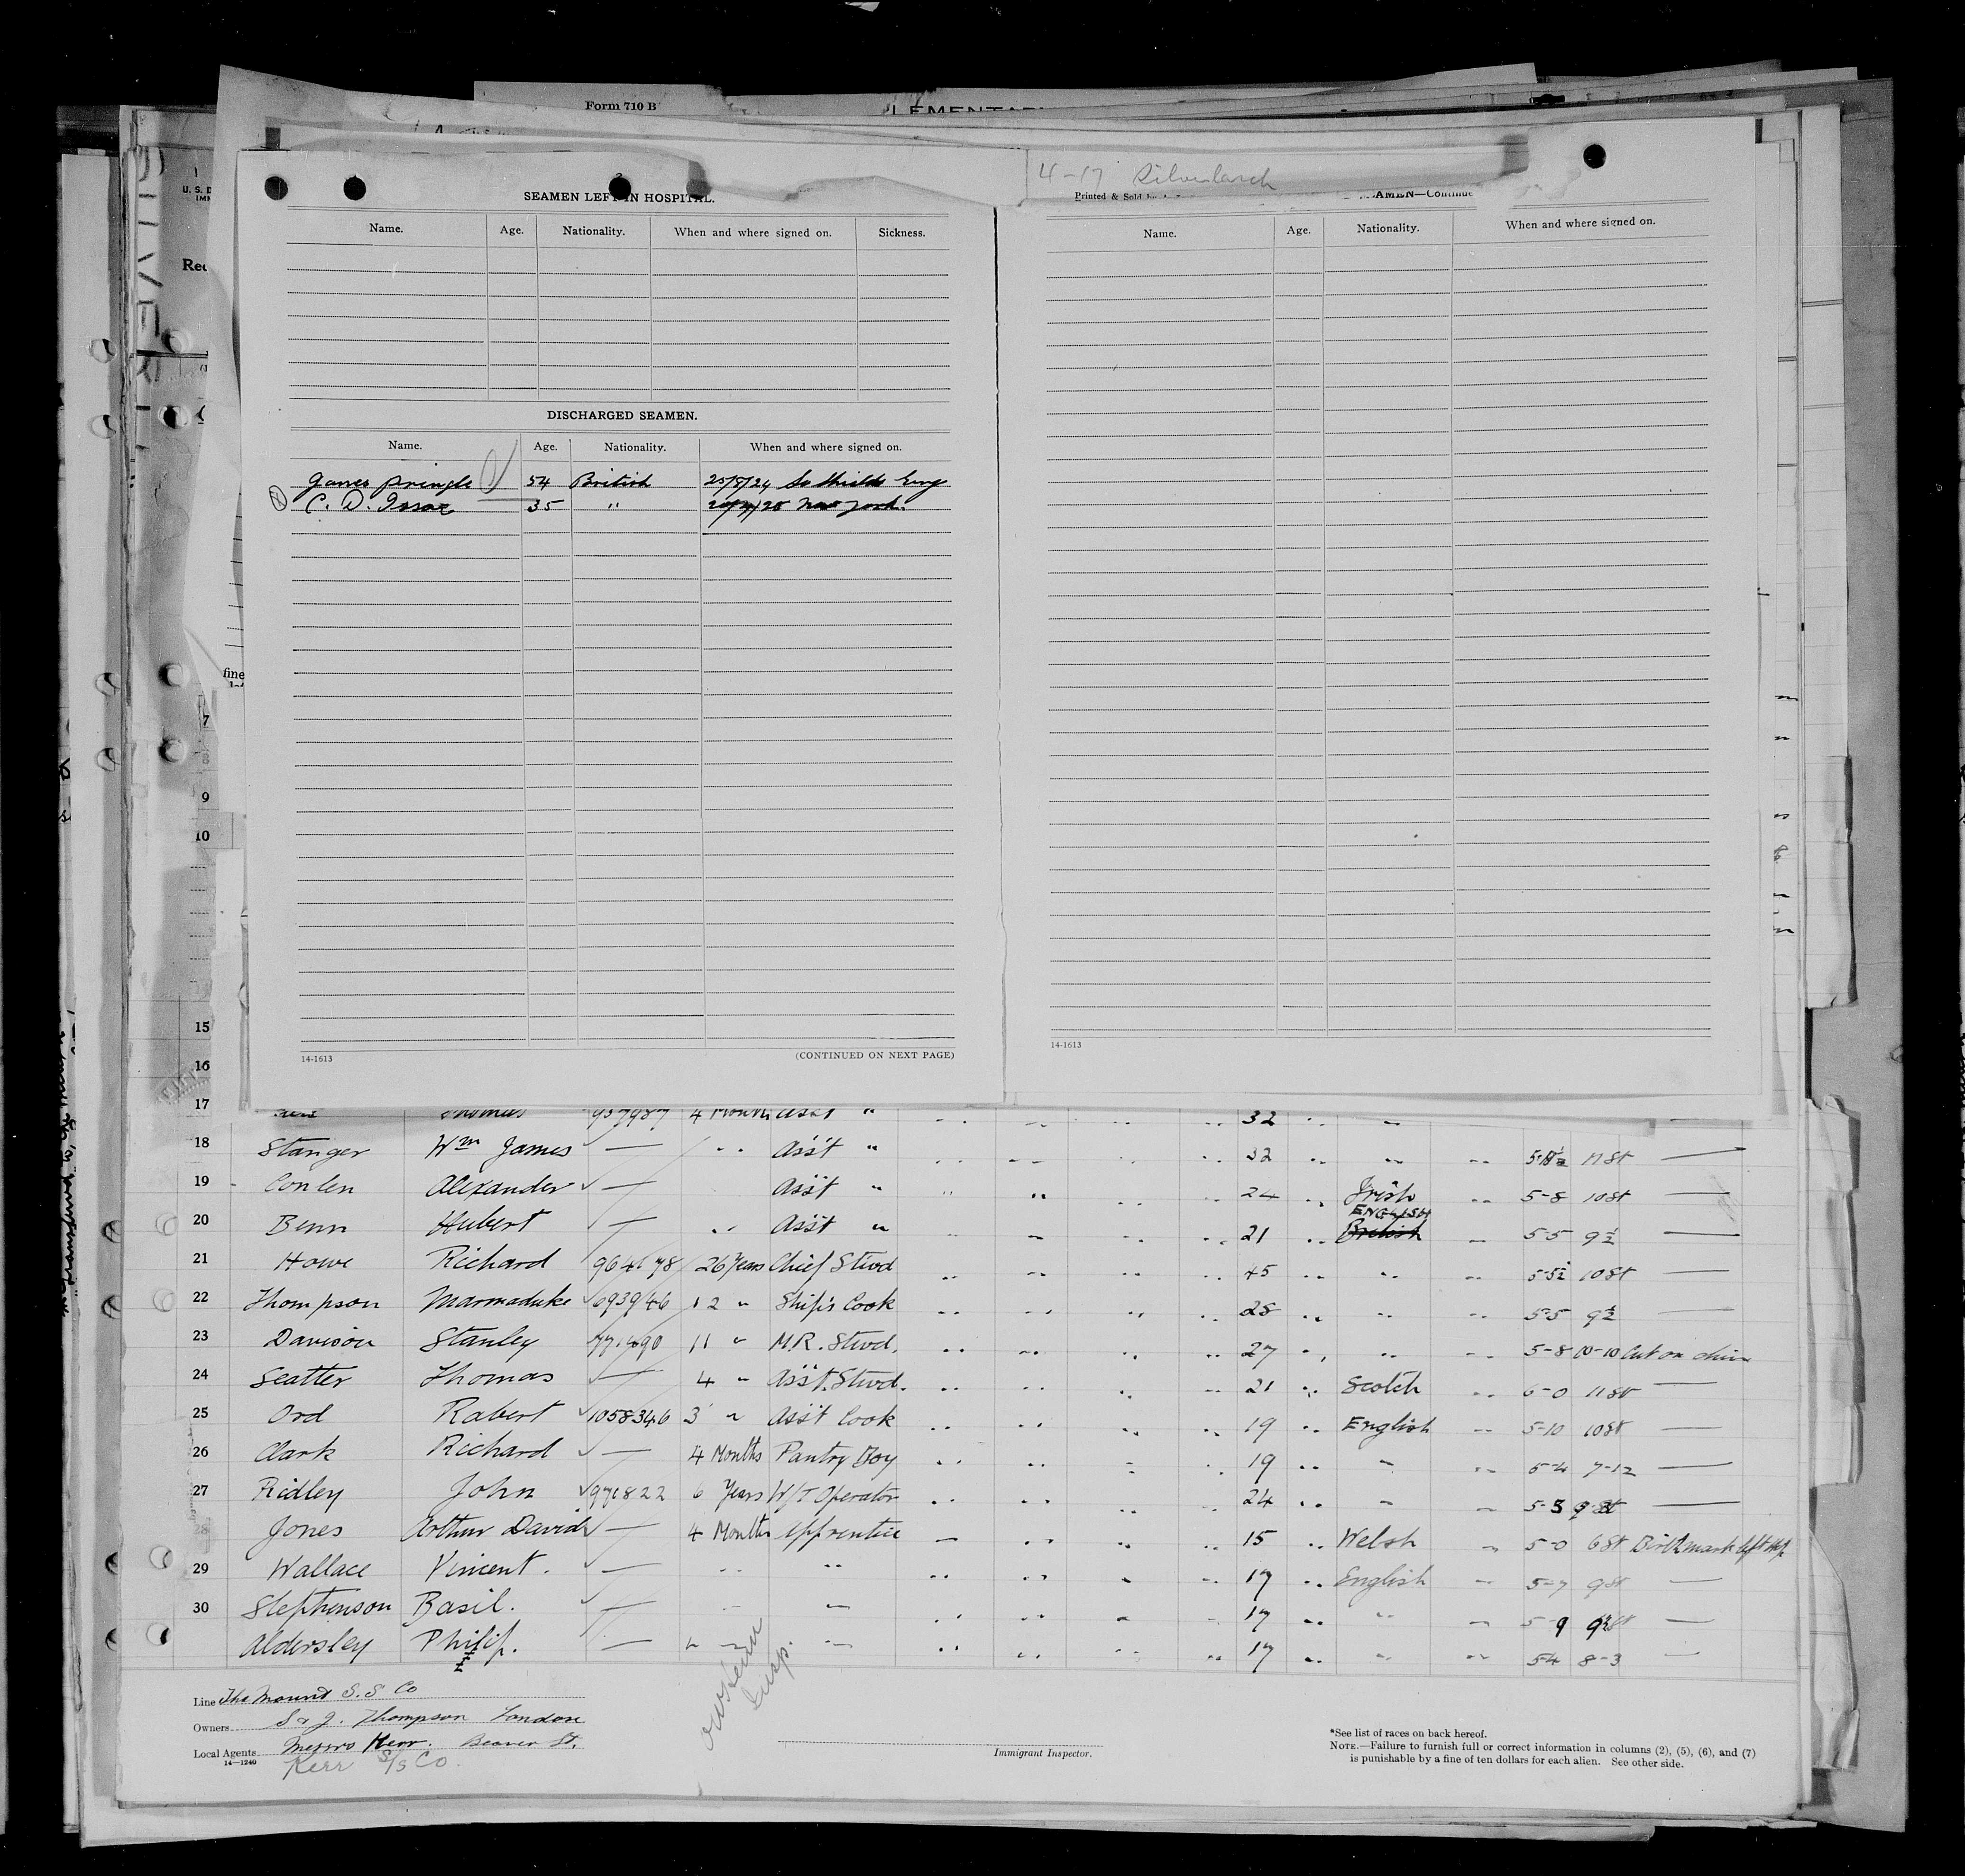 Form 710 B
4-17 Silverlarch
U. S. D
IMM
SEAMEN LEFT IN HOSPITAL.
Name. Age. Nationality. When and where signed on. Sickness.
DISCHARGED SEAMEN.
Name. Age. Nationality. When and where signed on.
James Pringle 54 British 25/8/24 So Shields Eng
C. D. Issac 35 " New York.
14-1613 (CONTINUED ON NEXT PAGE)
Printed & Sold by
AMEN—Continue
Name. Age. Nationality. When and where signed on.
14-1613
fine
7
9
10
15
16
17 Thomas 957987 4 Months Asst " 32
18 Stanger Wm James ✓ — " Ass't " 32 11 St —
19 Conlen Alexander ✓ — Ass't " 24 Irish 5-8 10St —
20 Benn Hubert — " Ass't " 21 ENGLISH British 5-5 9½ —
21 Howe Richard 964178 26 Years Chief Stwd 45 " 5-5½ 10St —
22 Thompson Marmaduke ✓ 693946 12 " Ship's Cook 28 " 5-5 9½ —
23 Davison Stanley 11 " M.R. Stwd. 27 " 5-8 10-10 Cut on chin
24 Scatter Thomas ✓ — 4 " Ass't. Stwd. 21 Scotch 6-0 11St —
25 Ord Robert ✓ 1058346 3 " Ass't Cook 19 English 5-10 10St —
26 Clark Richard ✓ — 4 Months Pantry Boy 19 " 5-4 7-12 —
27 Ridley John ✓ 971822 6 Years W/T Operator 24 " 5-5 —
28 Jones Arthur David ✓ — 4 Months Apprentice 15 Welsh 5-0 6St Birthmark left hip
29 Wallace Vincent. ✓ — " " 17 English 5-7 9St —
30 Stephenson Basil. ✓ — " " 17 " 5-9 —
Aldersley Philip. — " " 17 " 5-4 8-3 —
Line The Mound S.S Co
Owners S & J. Thompson London
Local Agents Messrs Kerr. Beaver St.
14—1240 Kerr S/S Co.
Insp.
Immigrant Inspector.
*See list of races on back hereof.
NOTE.—Failure to furnish full or correct information in columns (2), (5), (6), and (7)
is punishable by a fine of ten dollars for each alien. See other side.